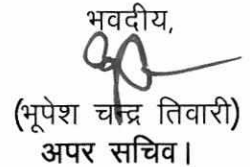 भवदीय,
(भूपेश चन्द्र तिवारी)
अपर सचिव।